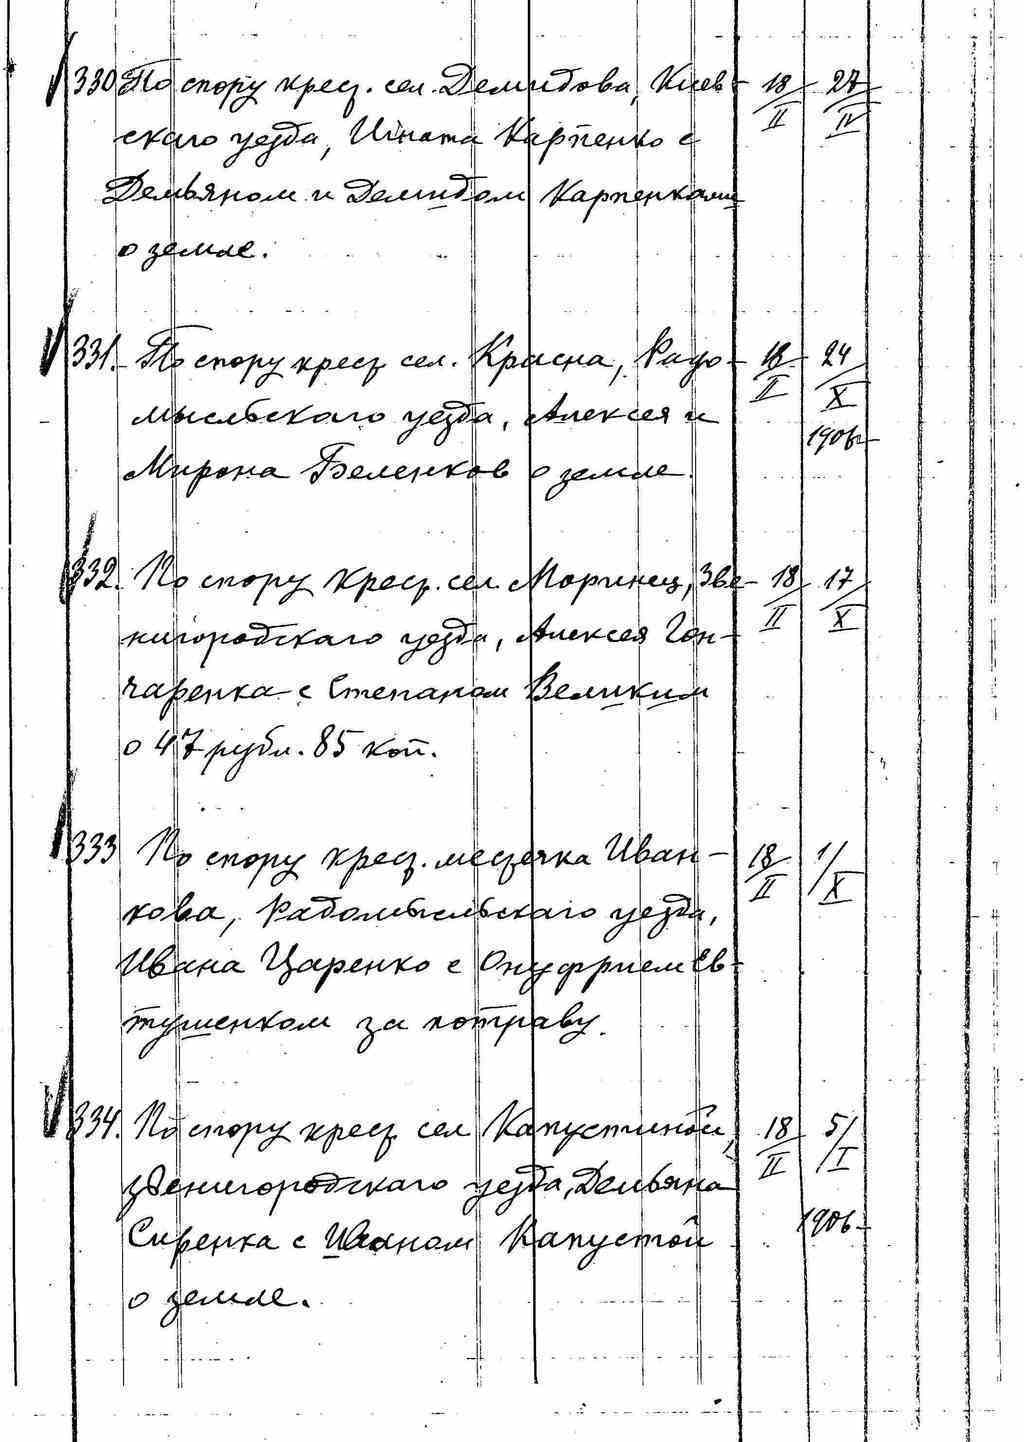 330 По спору крест. сел. Демидова, Киев- 18/II 27/IV
скаго уезда, Игната Карпенко с
Демьяном и Демидом Карпенками
о земле.
331. По спору крест. сел. Красна, Радо- 18/II 24/X
мысльскаго уезда, Алексея и 1906
Мирона Беленков о земле.
332. По спору крест. сел Моринец, Зве- 18/II 17/X
нигородскаго уезда, Алексея Гон-
чаренка с Степаном Великим
о 47 рубл. 85 коп.
333 По спору крест. местечка Иван- 18/II 1/X
кова, Радомысльскаго уезда,
Ивана Царенко с Онуфрием Ев-
тушенком за потраву.
334. По спору крест. сел Капустиной, 18/II 5/I
Звенигородскаго уезда, Демьяна
Сиренка с Иваном Капустой 1906
о земле.